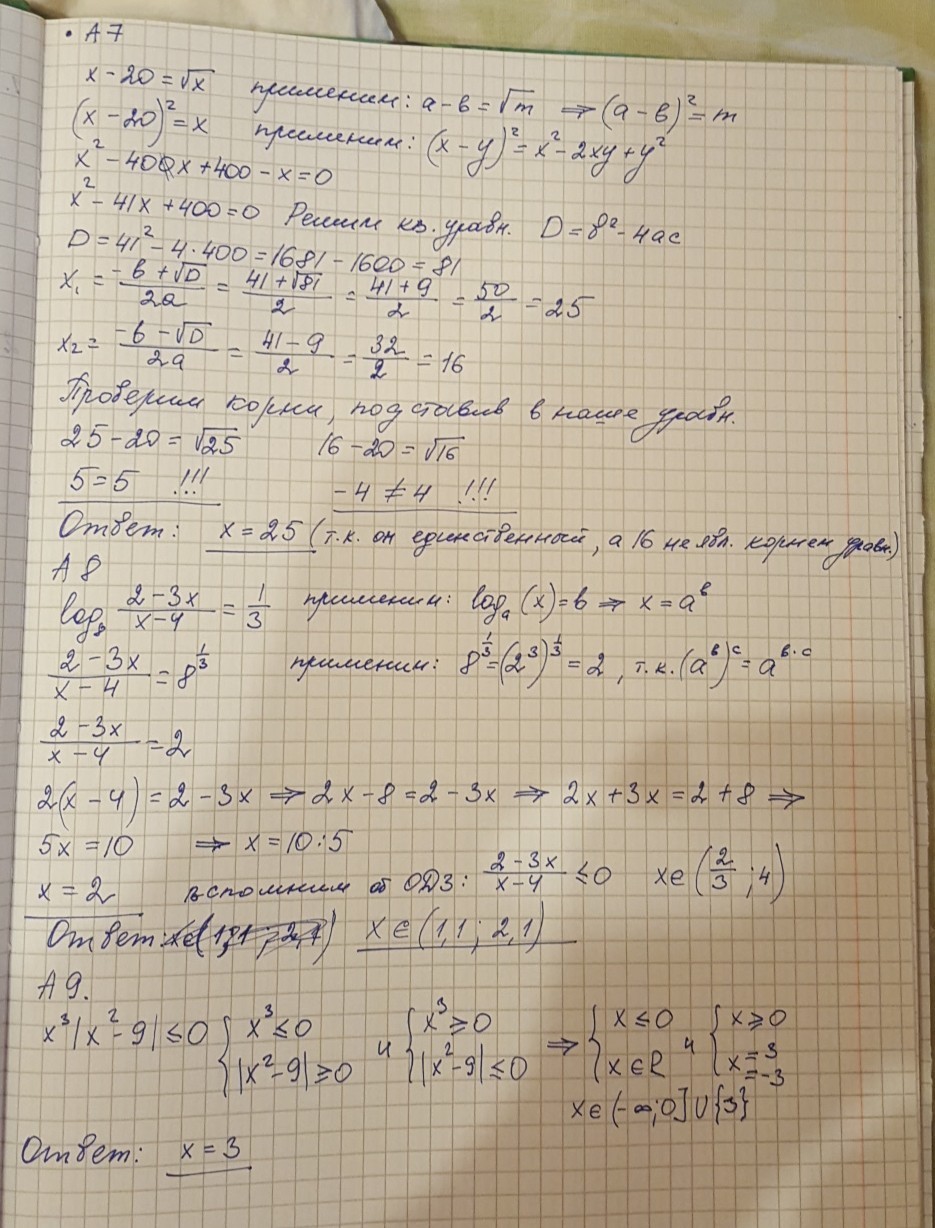 • А7
x − 20 = √x применим: a − b = √m ⇒ (a − b)² = m
(x − 20)² = x применим: (x − y)² = x² − 2xy + y²
x² − 400x + 400 − x = 0
x² − 41x + 400 = 0 Решим кв. уравн. D = b² − 4ac
D = 41² − 4·400 = 1681 − 1600 = 81
x₁ = (−b + √D)/2a = (41 + √81)/2 = (41 + 9)/2 = 50/2 = 25
x₂ = (−b − √D)/2a = (41 − 9)/2 = 32/2 = 16
Проверим корни, подставив в наше уравн.
25 − 20 = √25 16 − 20 = √16
5 = 5 !!! −4 ≠ 4 !!!
Ответ: x = 25 (т.к. он единственный, а 16 не явл. корнем уравн.)
А8
log₈ (2 − 3x)/(x − 4) = 1/3 применим: logₐ(x) = b ⇒ x = a^b
(2 − 3x)/(x − 4) = 8^(1/3) применим: 8^(1/3) = (2³)^(1/3) = 2, т.к. (a^b)^c = a^(b·c)
(2 − 3x)/(x − 4) = 2
2(x − 4) = 2 − 3x ⇒ 2x − 8 = 2 − 3x ⇒ 2x + 3x = 2 + 8 ⇒
5x = 10 ⇒ x = 10 : 5
x = 2 вспомним об ОДЗ: (2 − 3x)/(x − 4) ≤ 0 x∈(2/3 ; 4)
Ответ: x∈(1,1 ; 2,1) x ∈ (1,1 ; 2,1)
А9.
x³|x² − 9| ≤ 0 { x³ ≤ 0 |x² − 9| ≥ 0 и { x³ ≥ 0 |x² − 9| ≤ 0 ⇒ { x ≤ 0 x ∈ R и { x ≥ 0 x = 3 = −3
x∈(−∞;0]∪{3}
Ответ: x = 3